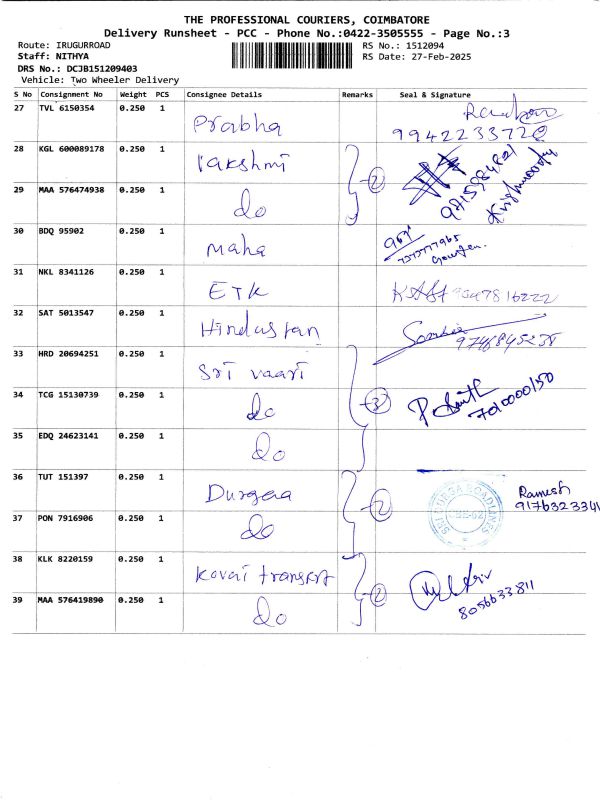 THE PROFESSIONAL COURIERS, COIMBATORE
Delivery Runsheet - PCC - Phone No.:0422-3505555 - Page No.:3
Route: IRUGURROAD RS No.: 1512094
Staff: NITHYA RS Date: 27-Feb-2025
DRS No.: DCJB151209403
Vehicle: Two Wheeler Delivery
S No Consignment No Weight PCS Consignee Details Remarks Seal & Signature
27 TVL 6150354 0.250 1 Prabha
9942233720
28 KGL 600089178 0.250 1 Lakshmi 2
29 MAA 576474938 0.250 1 do
30 BDQ 95902 0.250 1 maha
7373777965
31 NKL 8341126 0.250 1 ETK
32 SAT 5013547 0.250 1 Hindustan
9746845238
33 HRD 20694251 0.250 1 Sri vaari
34 TCG 15130739 0.250 1 do 3
7010000150
35 EDQ 24623141 0.250 1 do
36 TUT 151397 0.250 1 Durgaa 2 Ramesh
37 PON 7916906 0.250 1 do
38 KLK 8220159 0.250 1 Kovai transport
39 MAA 576419890 0.250 1 do 2 8056633811